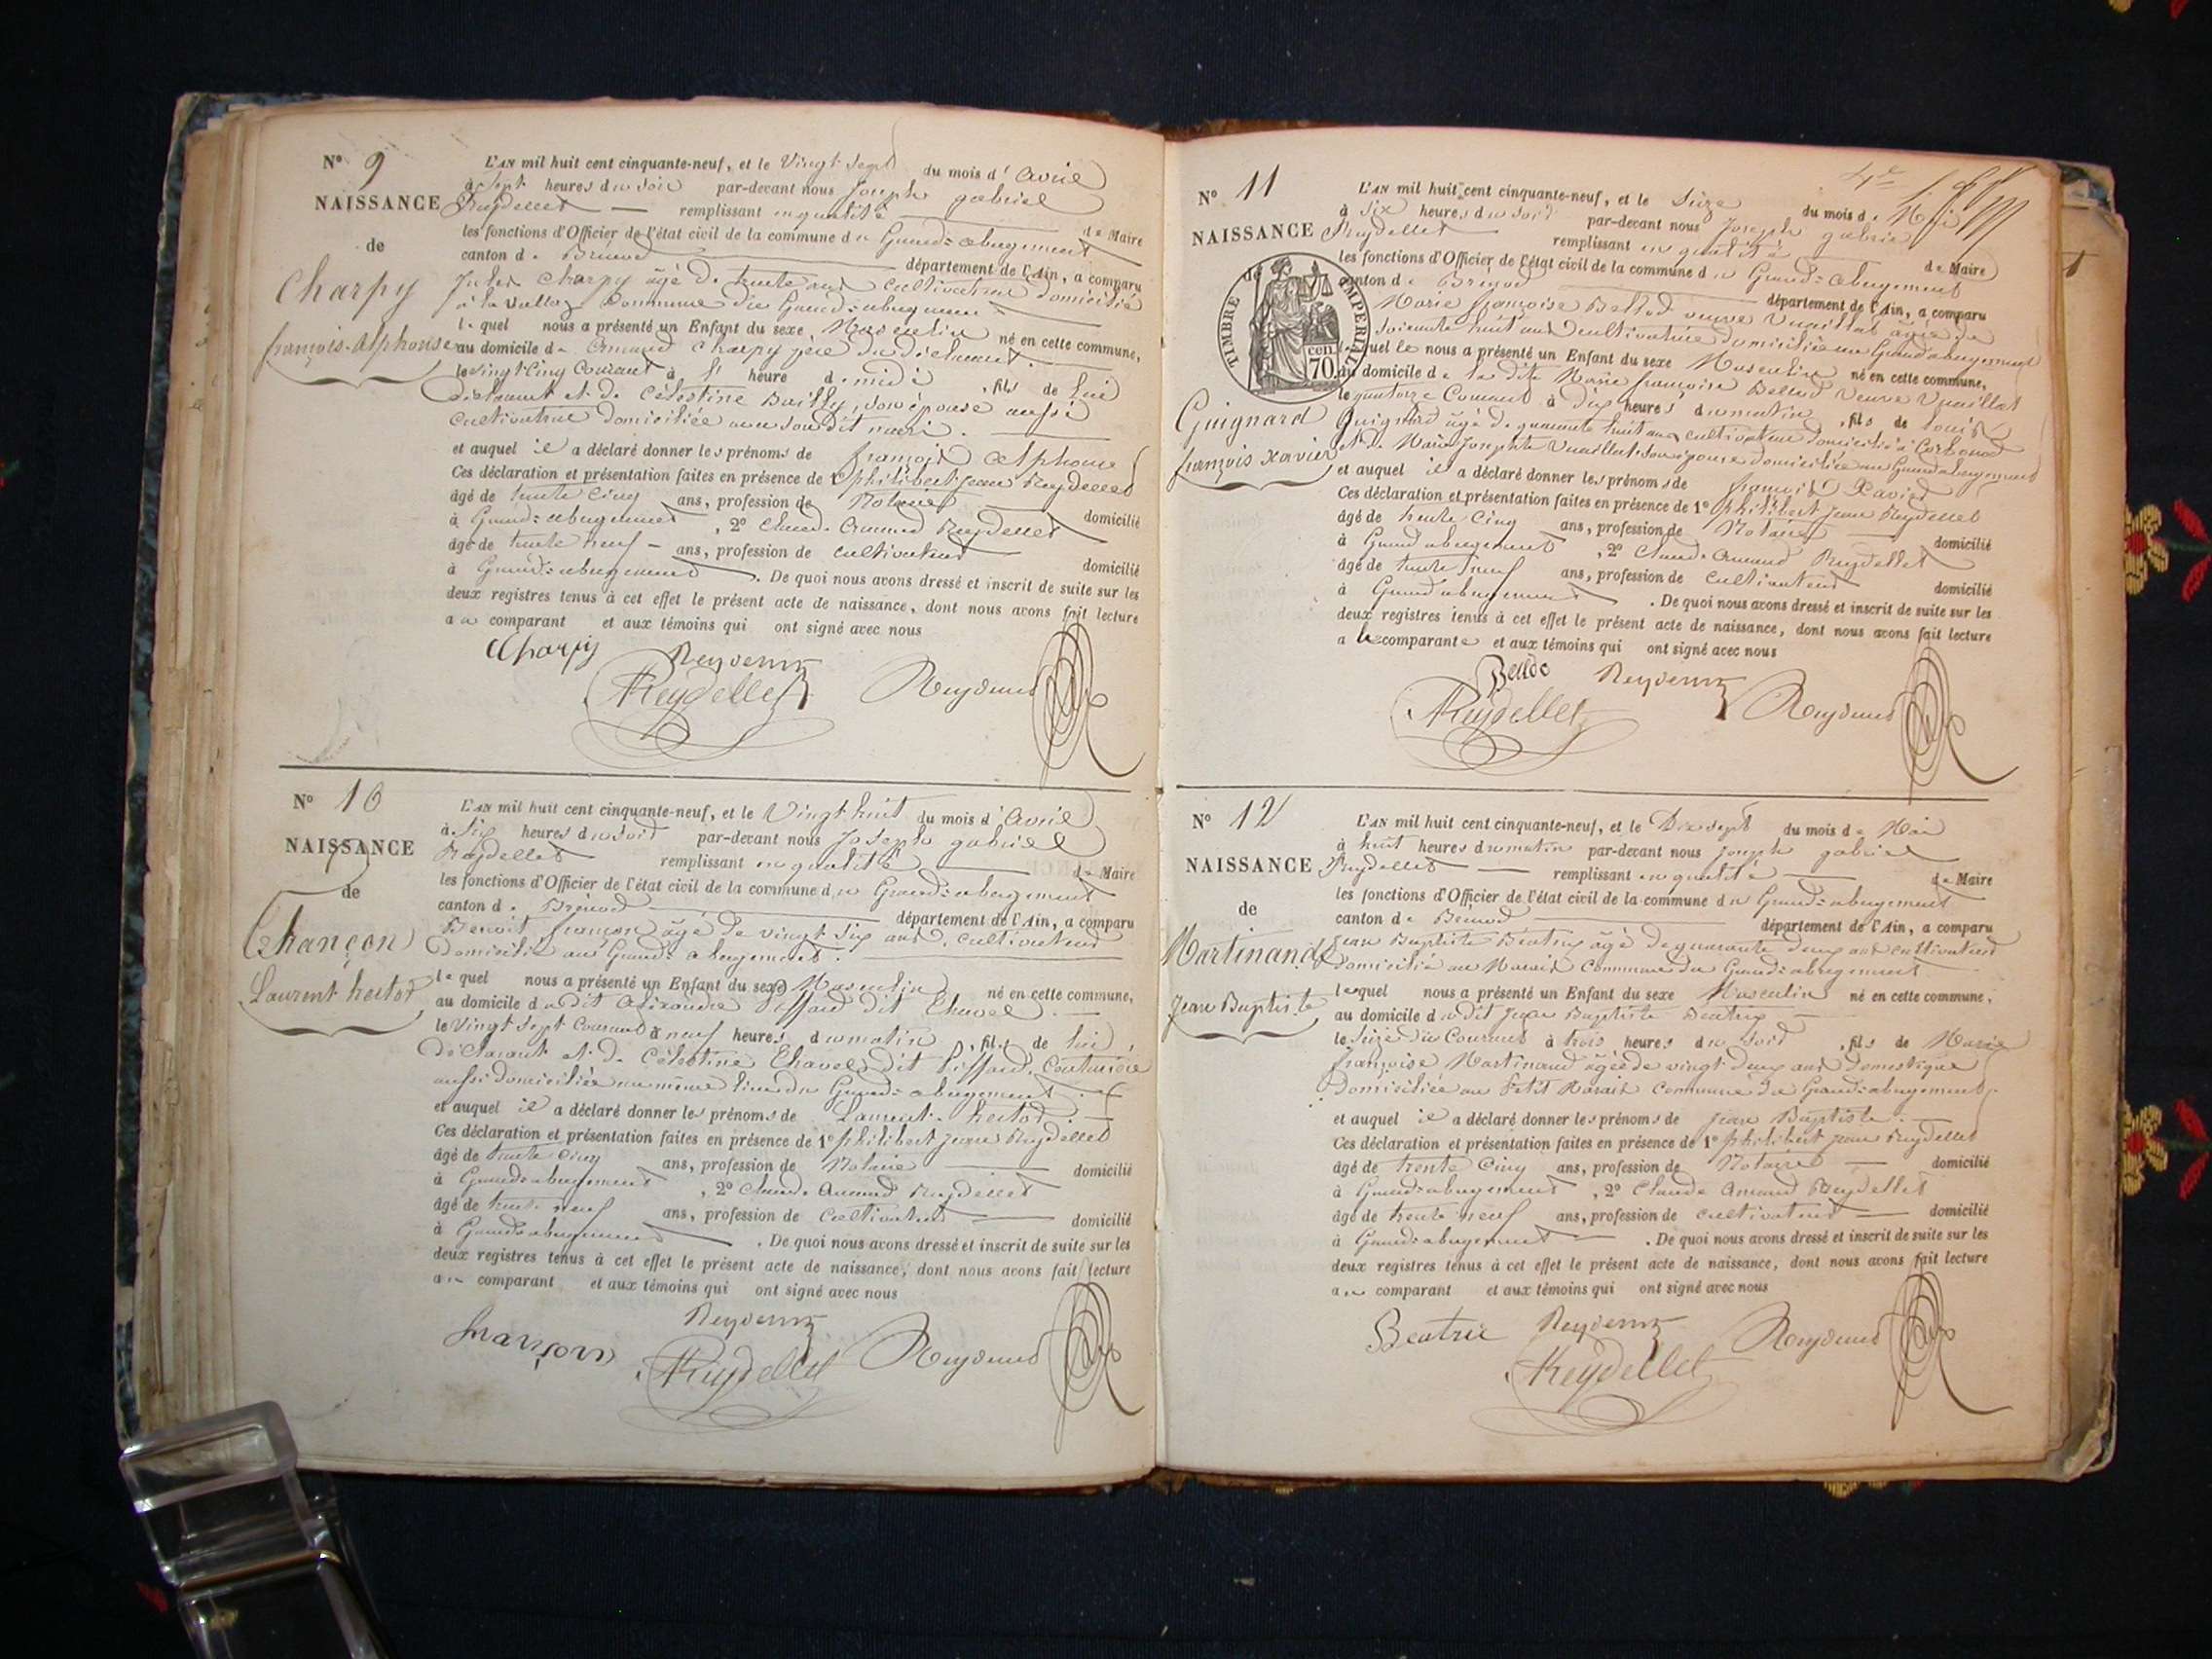 N° 9
NAISSANCE
de
Charpy
françois-alphonse
L'AN mil huit cent cinquante-neuf, et le Vingt Sept du mois d' avril
à Sept heures du soir par-devant nous Joseph gabriel
Reydellet — remplissant en qualité de Maire
les fonctions d'Officier de l'état civil de la commune du Grand=abergement
canton de Brénod département de l'Ain, a comparu
Jules Charpy âgé de trente ans cultivateur domicilié
Commune du Grand=abergement
le quel nous a présenté un Enfant du sexe Masculin né en cette commune,
au domicile de Armand Charpy père du déclarant
le vingt Cinq Courant à heure de midi , fils de lui
déclarant et de Célestine Bailly, son épouse aussi
cultivatrice domiciliée avec son dit mari.
et auquel il a déclaré donner les prénoms de françois Alphonse
Ces déclaration et présentation faites en présence de 1° philibert jean Reydellet
âgé de trente Cinq ans, profession de Notaire domicilié
à Grand=abergement , 2° Claude Armand Reydellet
âgé de trente neuf — ans, profession de cultivateur domicilié
à Grand=abergement . De quoi nous avons dressé et inscrit de suite sur les
deux registres tenus à cet effet le présent acte de naissance, dont nous avons fait lecture
au comparant et aux témoins qui ont signé avec nous
Charpy Reydellet
Reydellet Reydellet
N° 10
NAISSANCE
de
Chançon
Laurent hector
L'AN mil huit cent cinquante-neuf, et le Vingt huit du mois d' avril
à Six heures du soir par-devant nous Joseph gabriel
Reydellet remplissant en qualité de Maire
les fonctions d'Officier de l'état civil de la commune du Grand=abergement
canton de Brénod département de l'Ain, a comparu
Benoit françon âgé de vingt Six ans, cultivateur
Domicilié au Grand=abergement.
le quel nous a présenté un Enfant du sexe Masculin né en cette commune,
au domicile du dit Alexandre Piffard dit Chavel.
le Vingt Sept Courant à neuf heures du matin , fils de lui
déclarant et de Célestine Chavel dit Piffard, Couturière
aussi domiciliée au même lieu du Grand=abergement.
et auquel il a déclaré donner les prénoms de Laurent hector.
Ces déclaration et présentation faites en présence de 1° philibert jean Reydellet
âgé de trente Cinq ans, profession de Notaire domicilié
à Grand=abergement , 2° Claude Armand Reydellet
âgé de trente neuf ans, profession de Cultivateur domicilié
à Grand=abergement . De quoi nous avons dressé et inscrit de suite sur les
deux registres tenus à cet effet le présent acte de naissance, dont nous avons fait lecture
au comparant et aux témoins qui ont signé avec nous
françon Reydellet
Reydellet Reydellet
N° 11
NAISSANCE
de
TIMBRE IMPÉRIAL
70 cen.
Guignard
françois xavier
L'AN mil huit cent cinquante-neuf, et le Seize du mois de Mai
à Six heures du soir par-devant nous Joseph gabriel
Reydellet remplissant en qualité de Maire
les fonctions d'Officier de l'état civil de la commune du Grand=abergement
canton de Brénod département de l'Ain, a comparu
Marie françoise Bellod veuve Vuaillat âgée de
soixante huit ans cultivatrice domiciliée au Grand abergement
laquelle nous a présenté un Enfant du sexe Masculin né en cette commune,
au domicile de la dite Marie françoise Bellod Veuve Vuaillat
le quatorze Courant à dix heures du matin , fils de Louis
Guignard âgé de quarante huit ans cultivateur domicilié à Corbonod
et de Marie Josephte Vuaillat son épouse domiciliée au Grand abergement
et auquel il a déclaré donner les prénoms de françois Xavier
Ces déclaration et présentation faites en présence de 1° philibert jean Reydellet
âgé de trente Cinq ans, profession de Notaire domicilié
à Grand abergement , 2° Claude Armand Reydellet
âgé de trente neuf ans, profession de Cultivateur domicilié
à Grand abergement . De quoi nous avons dressé et inscrit de suite sur les
deux registres tenus à cet effet le présent acte de naissance, dont nous avons fait lecture
a la comparante et aux témoins qui ont signé avec nous
Reydellet
Reydellet Reydellet
N° 12
NAISSANCE
de
Martinand
Jean Baptiste
L'AN mil huit cent cinquante-neuf, et le Dix sept du mois de Mai
à huit heures du matin par-devant nous Joseph gabriel
Reydellet — remplissant en qualité — de Maire
les fonctions d'Officier de l'état civil de la commune du Grand=abergement
canton de Brénod département de l'Ain, a comparu
Jean Baptiste Beatrix âgé de quarante deux ans cultivateur
Domicilié au Marais Commune du Grand=abergement
lequel nous a présenté un Enfant du sexe Masculin né en cette commune,
au domicile du dit Jean Baptiste Beatrix —
le Seize du Courant à trois heures du soir , fils de Marie
françoise Martinand âgée de vingt deux ans domestique
Domiciliée au Petit Marais Commune du Grand=abergement
et auquel il a déclaré donner les prénoms de Jean Baptiste.
Ces déclaration et présentation faites en présence de 1° philibert jean Reydellet
âgé de trente Cinq ans, profession de Notaire — domicilié
à Grand=abergement , 2° Claude Armand Reydellet
âgé de trente neuf ans, profession de cultivateur — domicilié
à Grand=abergement — . De quoi nous avons dressé et inscrit de suite sur les
deux registres tenus à cet effet le présent acte de naissance, dont nous avons fait lecture
au comparant et aux témoins qui ont signé avec nous
Beatrix Reydellet
Reydellet Reydellet